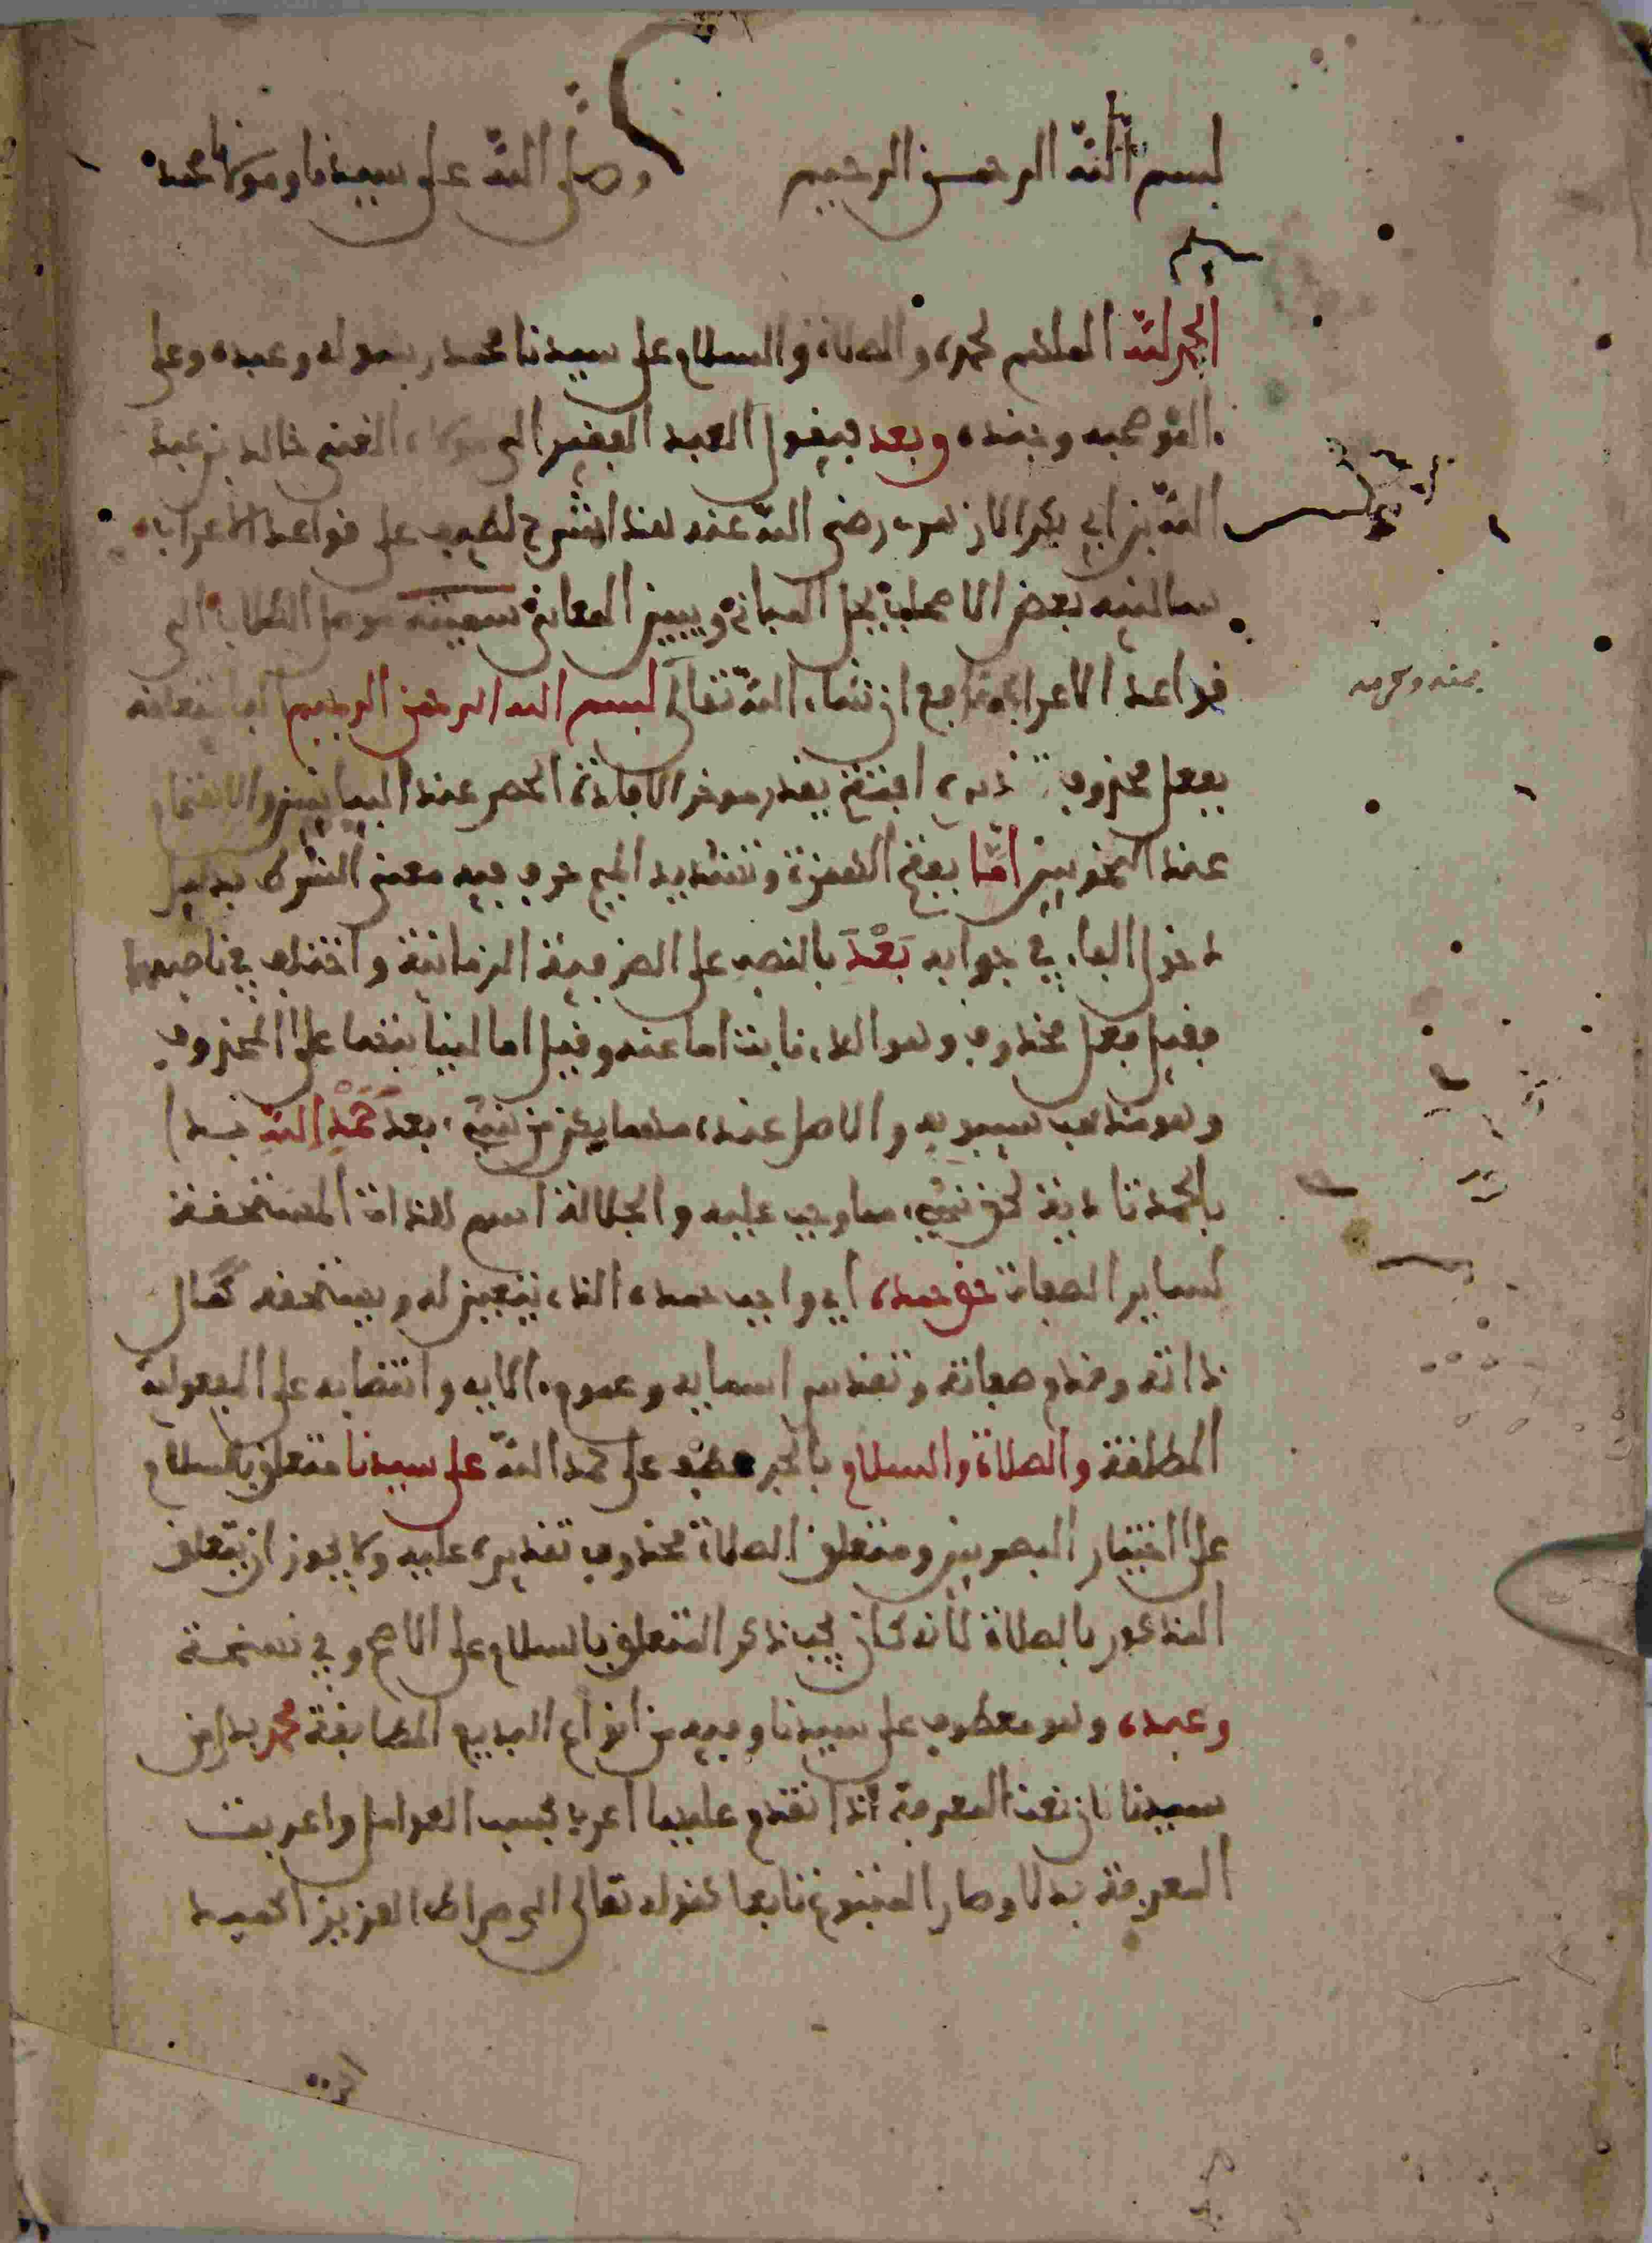 بسم الله الرحمن الرحيم وصلى الله على سيدنا ومولانا محمد
الحمد لله الملهم لحمده والصلاة والسلام على سيدنا محمد رسوله وعبده وعلى
اله وصحبه وجنده وبعد فيقول العبد الفقير الى مولاه الغني خالد بن عبد
الله بن ابي بكر الازهري رضي الله عنه هذا شرح لطيف على قواعد الاعراب
سالنيه بعض الاصحاب يحل المباني ويبين المعاني سميته موصل الطلاب الى
قواعد الاعراب نافع ان شاء الله تعالى بسم الله الرحمن الرحيم الباء متعلقة
بفعل محذوف تقديره افتتح يقدر موخر الافادة الحصر عند البيانيين والاهتمام
عند النحويين اما بفتح الهمزة وتشديد الميم حرف فيه معنى الشرط بدليل
دخول الفاء في جوابه بعد بالنصب على الظرفية الزمانية واختلف في ناصبها
فقيل فعل محذوف وهو الذي نابت اما عنه وقيل اما لنيابتها على المحذوف
وهو مذهب سيبويه والاصل عنده مهما يكن من شيء بعد حمد الله بدا
بالحمد تادية لحق شيء مما وجب عليه والجلالة اسم للذات المستحقة
لساير الصفات حق حمده اي واجب حمده الذي يتعين له ويستحقه كمال
ذاته وقدم صفاته وتقدس اسمايه وعموم الايه وانتصابه على المفعولية
المطلقة والصلاة والسلام بالجر عطف على حمد الله على سيدنا متعلق بالسلام
على اختيار البصريين ومتعلق الصلاة محذوف تقديره عليه ولا يجوز ان يتعلق
المذكور بالصلاة لانه كان يجب ذكر المتعلق بالسلام على الاصح وفي نسخة
وعبده وهو معطوف على سيدنا وفيه من انواع البديع المطابقة محمد بدل من
سيدنا لان نعت المعرفة اذا تقدم عليها اعرب بحسب العوامل واعربت
المعرفة بدلا وصار المتبوع تابعا كقوله تعالى الى صراط العزيز الحميد